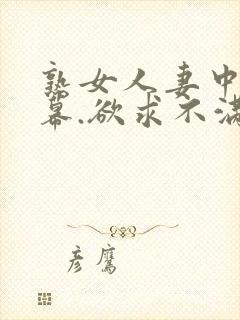 熟女人妻中
幕.欲求不满
彦鹰